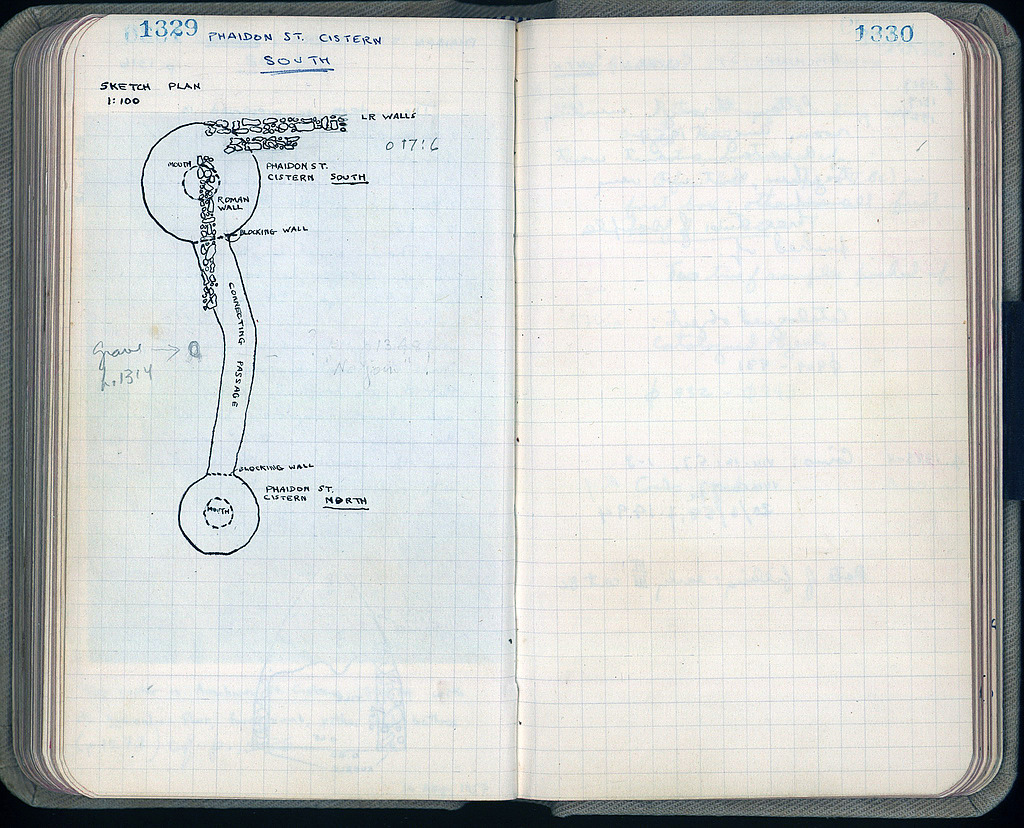 1329
PHAIDON ST. CISTERN
SOUTH
SKETCH PLAN
1:100
LR WALLS
01716
MOUTH
PHAIDON ST.
CISTERN SOUTH
ROMAN
WALL
BLOCKING WALL
CONNECTING PASSAGE
Grave
p. 1314
BLOCKING WALL
PHAIDON ST.
CISTERN NORTH
MOUTH
1330